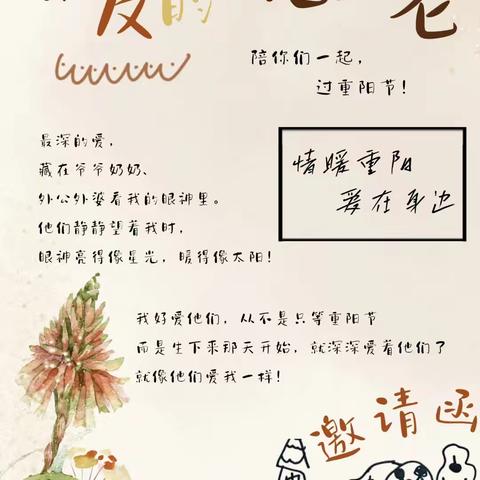 的
陪你们一起，
过重阳节！
最深的爱，
藏在爷爷奶奶、
外公外婆看我的眼神里。
他们静静望着我时，
眼神亮得像星光，暖得像太阳！
情暖重阳
爱在身边
我好爱他们，从不是只等重阳节
而是生下来那天开始，就深深爱着他们了
就像他们爱我一样！
邀请函